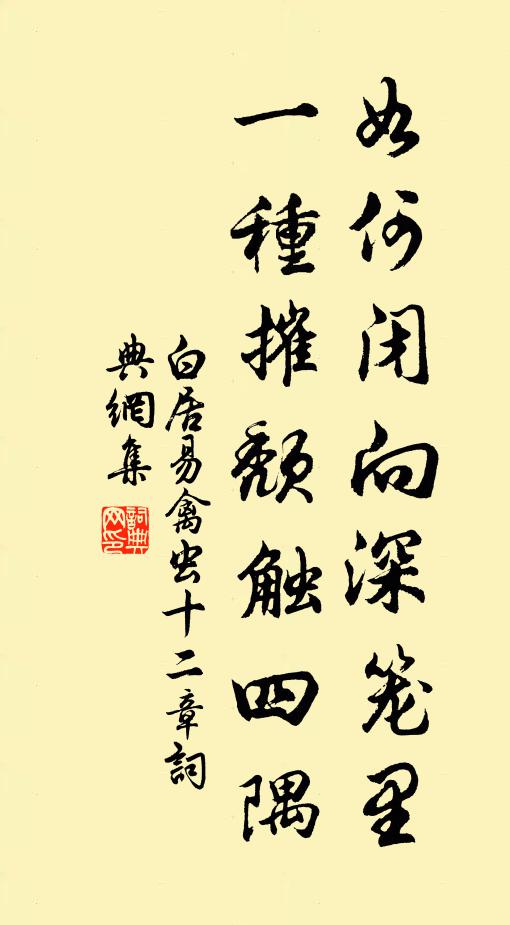 如何闭向深笼里
一種摧颓触四隅
白居易禽虫十二章詞
典網集
詞典网印